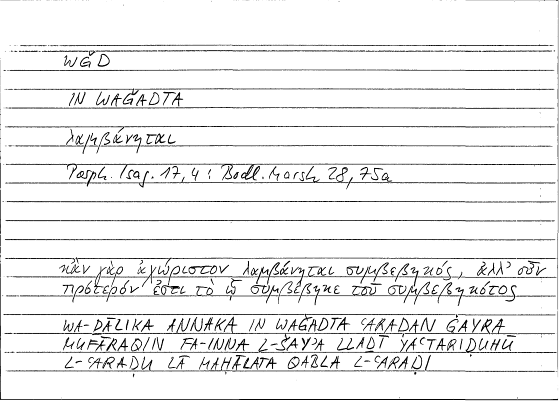 WǦD
IN WAǦADTA
λαμβάνηται
Porph. Isag. 17,4 : Bodl. Marsh 28,75a
κἂν γὰρ ἀχώριστον λαμβάνηται συμβεβηκός, ἀλλ' οὖν
πρότερόν ἐστι τὸ ᾧ συμβέβηκε τοῦ συμβεβηκότος
WA-ḎĀLIKA ANNAKA IN WAǦADTA ʿARAḌAN ĠAYRA
MUFĀRAQIN FA-INNA L-ŠAYʾA LLAḎĪ YAʿTARIḌUHŪ
L-ʿARAḌU LĀ MAḤĀLATA QABLA L-ʿARAḌI